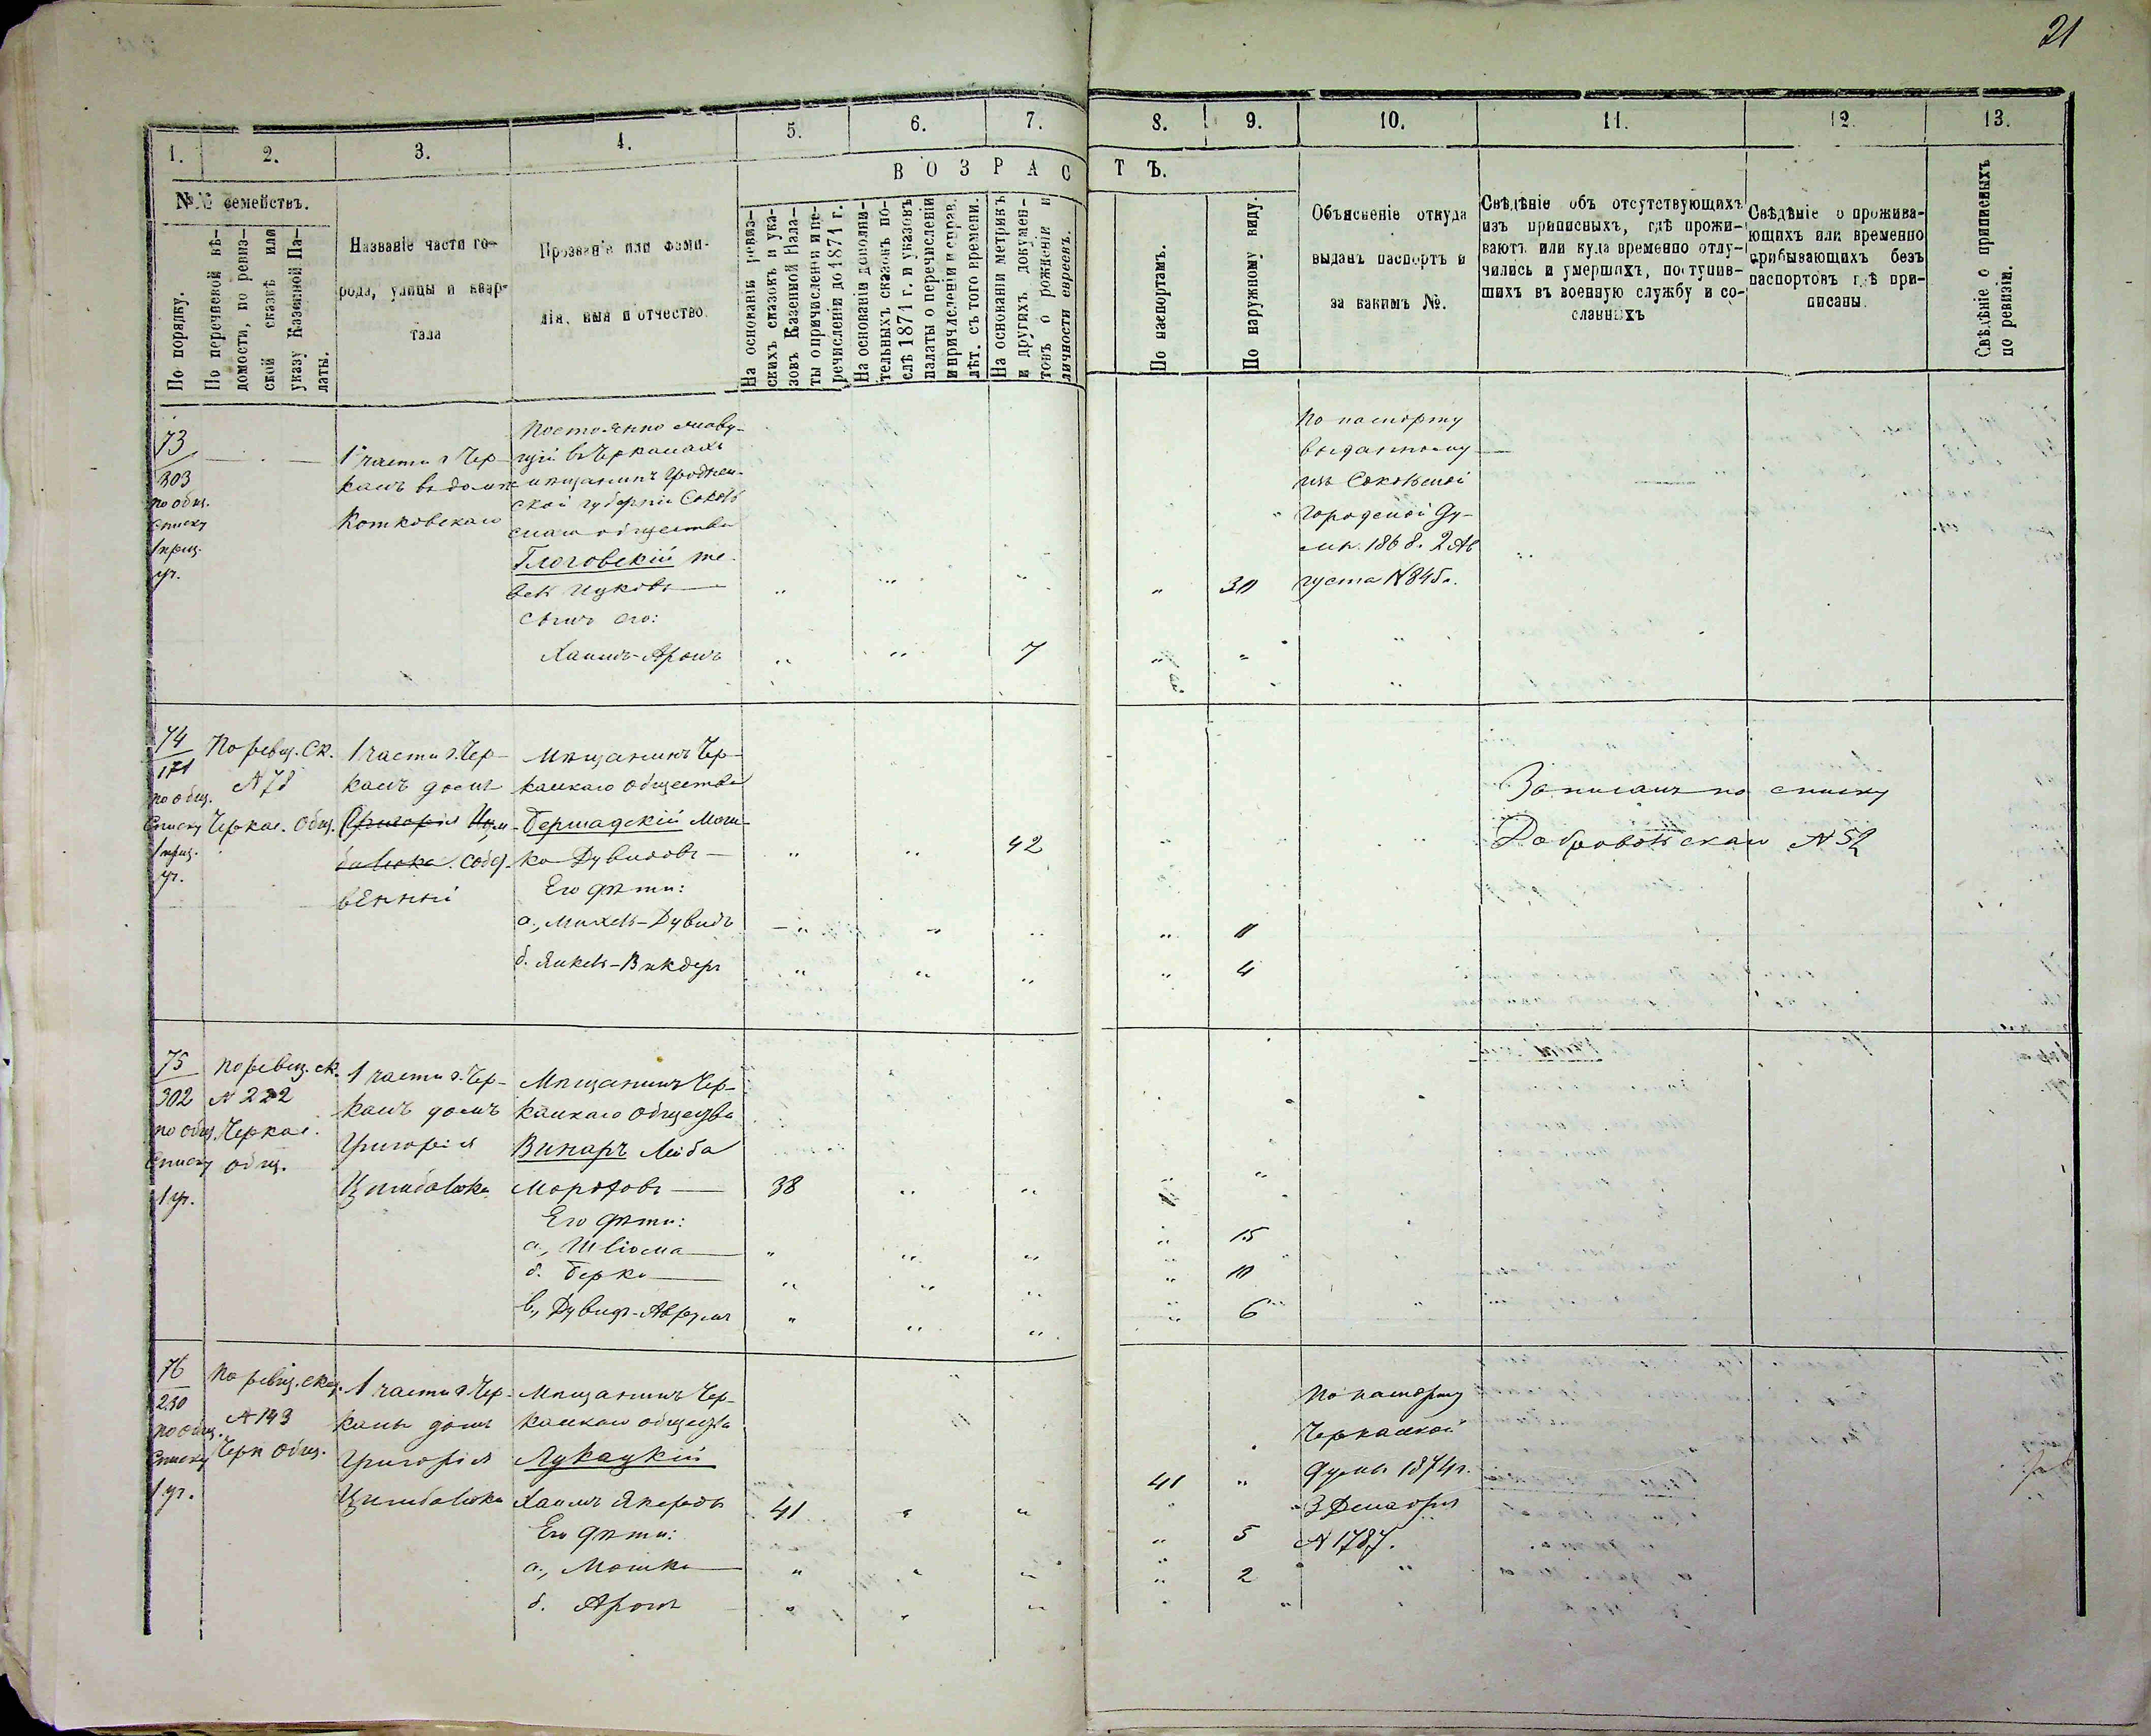 21
1. 2. 3. 4. 5. 6. 7. 8. 9. 10. 11. 12. 13.
ВОЗРАСТЪ.
№№ семействъ.
По порядку.
По перечневой вѣ-
домости, по ревиз-
ской сказкѣ или
указу Казенной Па-
латы.
Названіе части го-
рода, улицы и квар-
тала
Прозваніе или фами-
лія, имя и отчество.
На основаніи ревиз-
скихъ сказокъ и ука-
зовъ Казенной Пала-
ты о причисленіи и пе-
речисленіи до 1871 г.
На основаніи дополни-
тельныхъ сказокъ по-
слѣ 1871 г. и указовъ
палаты о перечисленіи
и причисленіи и справ.
лѣт. съ того времени.
На основаніи метрикъ
и другихъ докумен-
товъ о рожденіи и
личности евреевъ.
По паспортамъ.
По наружному виду.
Объясненіе откуда
выданъ паспортъ и
за какимъ №.
Свѣдѣніе объ отсутствующихъ
изъ приписныхъ, гдѣ прожи-
ваютъ или куда временно отлу-
чились и умершихъ, поступив-
шихъ въ военную службу и со-
сланныхъ
Свѣдѣніе о прожива-
ющихъ или временно
прибывающихъ безъ
паспортовъ гдѣ при-
писаны.
Свѣдѣніе о приписныхъ
по ревизіи.
73
303
по общ.
списку
1 приз.
уч.
1 части г. Чер-
касъ въ домѣ
Котковскаго
Постоянно живу-
щій въ Черкасахъ
мѣщанинъ Гроднен-
ской губерніи Соколь
скаго общества
Глоговскій
Ицковъ
Сынъ его:
Хаимъ-Аронъ
7
30
По паспорту
выданному
изъ Сокольской
городской Ду-
мы 1868. 2 Ав
густа № 845.
74
171
по общ.
списку
1 приз.
уч.
По ревиз. ск.
№ 78
Черкас. общ.
1 части г. Чер-
касъ домъ
Григорія Цым-
балюка собст.
венный
Мѣщанинъ Чер-
каскаго общества
Бершадскій Мош-
ко Дувидовъ
42
Его дѣти:
а., Михель-Дувидъ
11
б. Янкель-Викдеръ
4
Записанъ по списку
Добровольскаго № 52
75
302
по общ.
списку
1 уч.
По ревиз. ск.
№ 222
Черкас.
общ.
1 части г. Чер-
касъ домъ
Григорія
Цымбалюка
Мѣщанинъ Чер-
каскаго общества
Винаръ Лейба
Мордковъ
38
Его дѣти:
а., Шліома
15
б. Берко
10
в., Дувидъ-Аврумъ
6
76
250
по общ.
списку
1 уч.
По ревиз. сказ.
№ 143
Черк. общ.
1 части г. Чер-
касы домъ
Григорія
Цымбалюка
Мѣщанинъ Чер-
каскаго общества
Лукацкій
Хаимъ
41
41
Его дѣти:
а., Мошко
5
б. Аронъ
2
По паспорту
Черкаской
думы 1874 г.
3 Декабря
№ 1787.